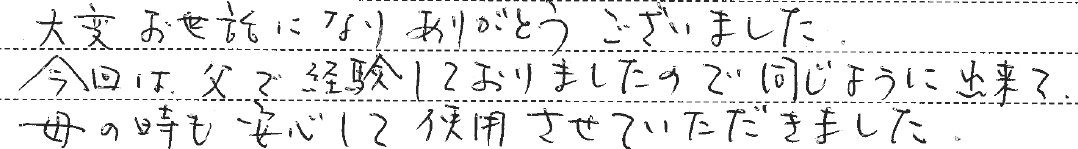 大変お世話になりありがとうございました.
今回は、父で経験しておりましたので同じように出来て、
母の時も安心して使用させていただきました.